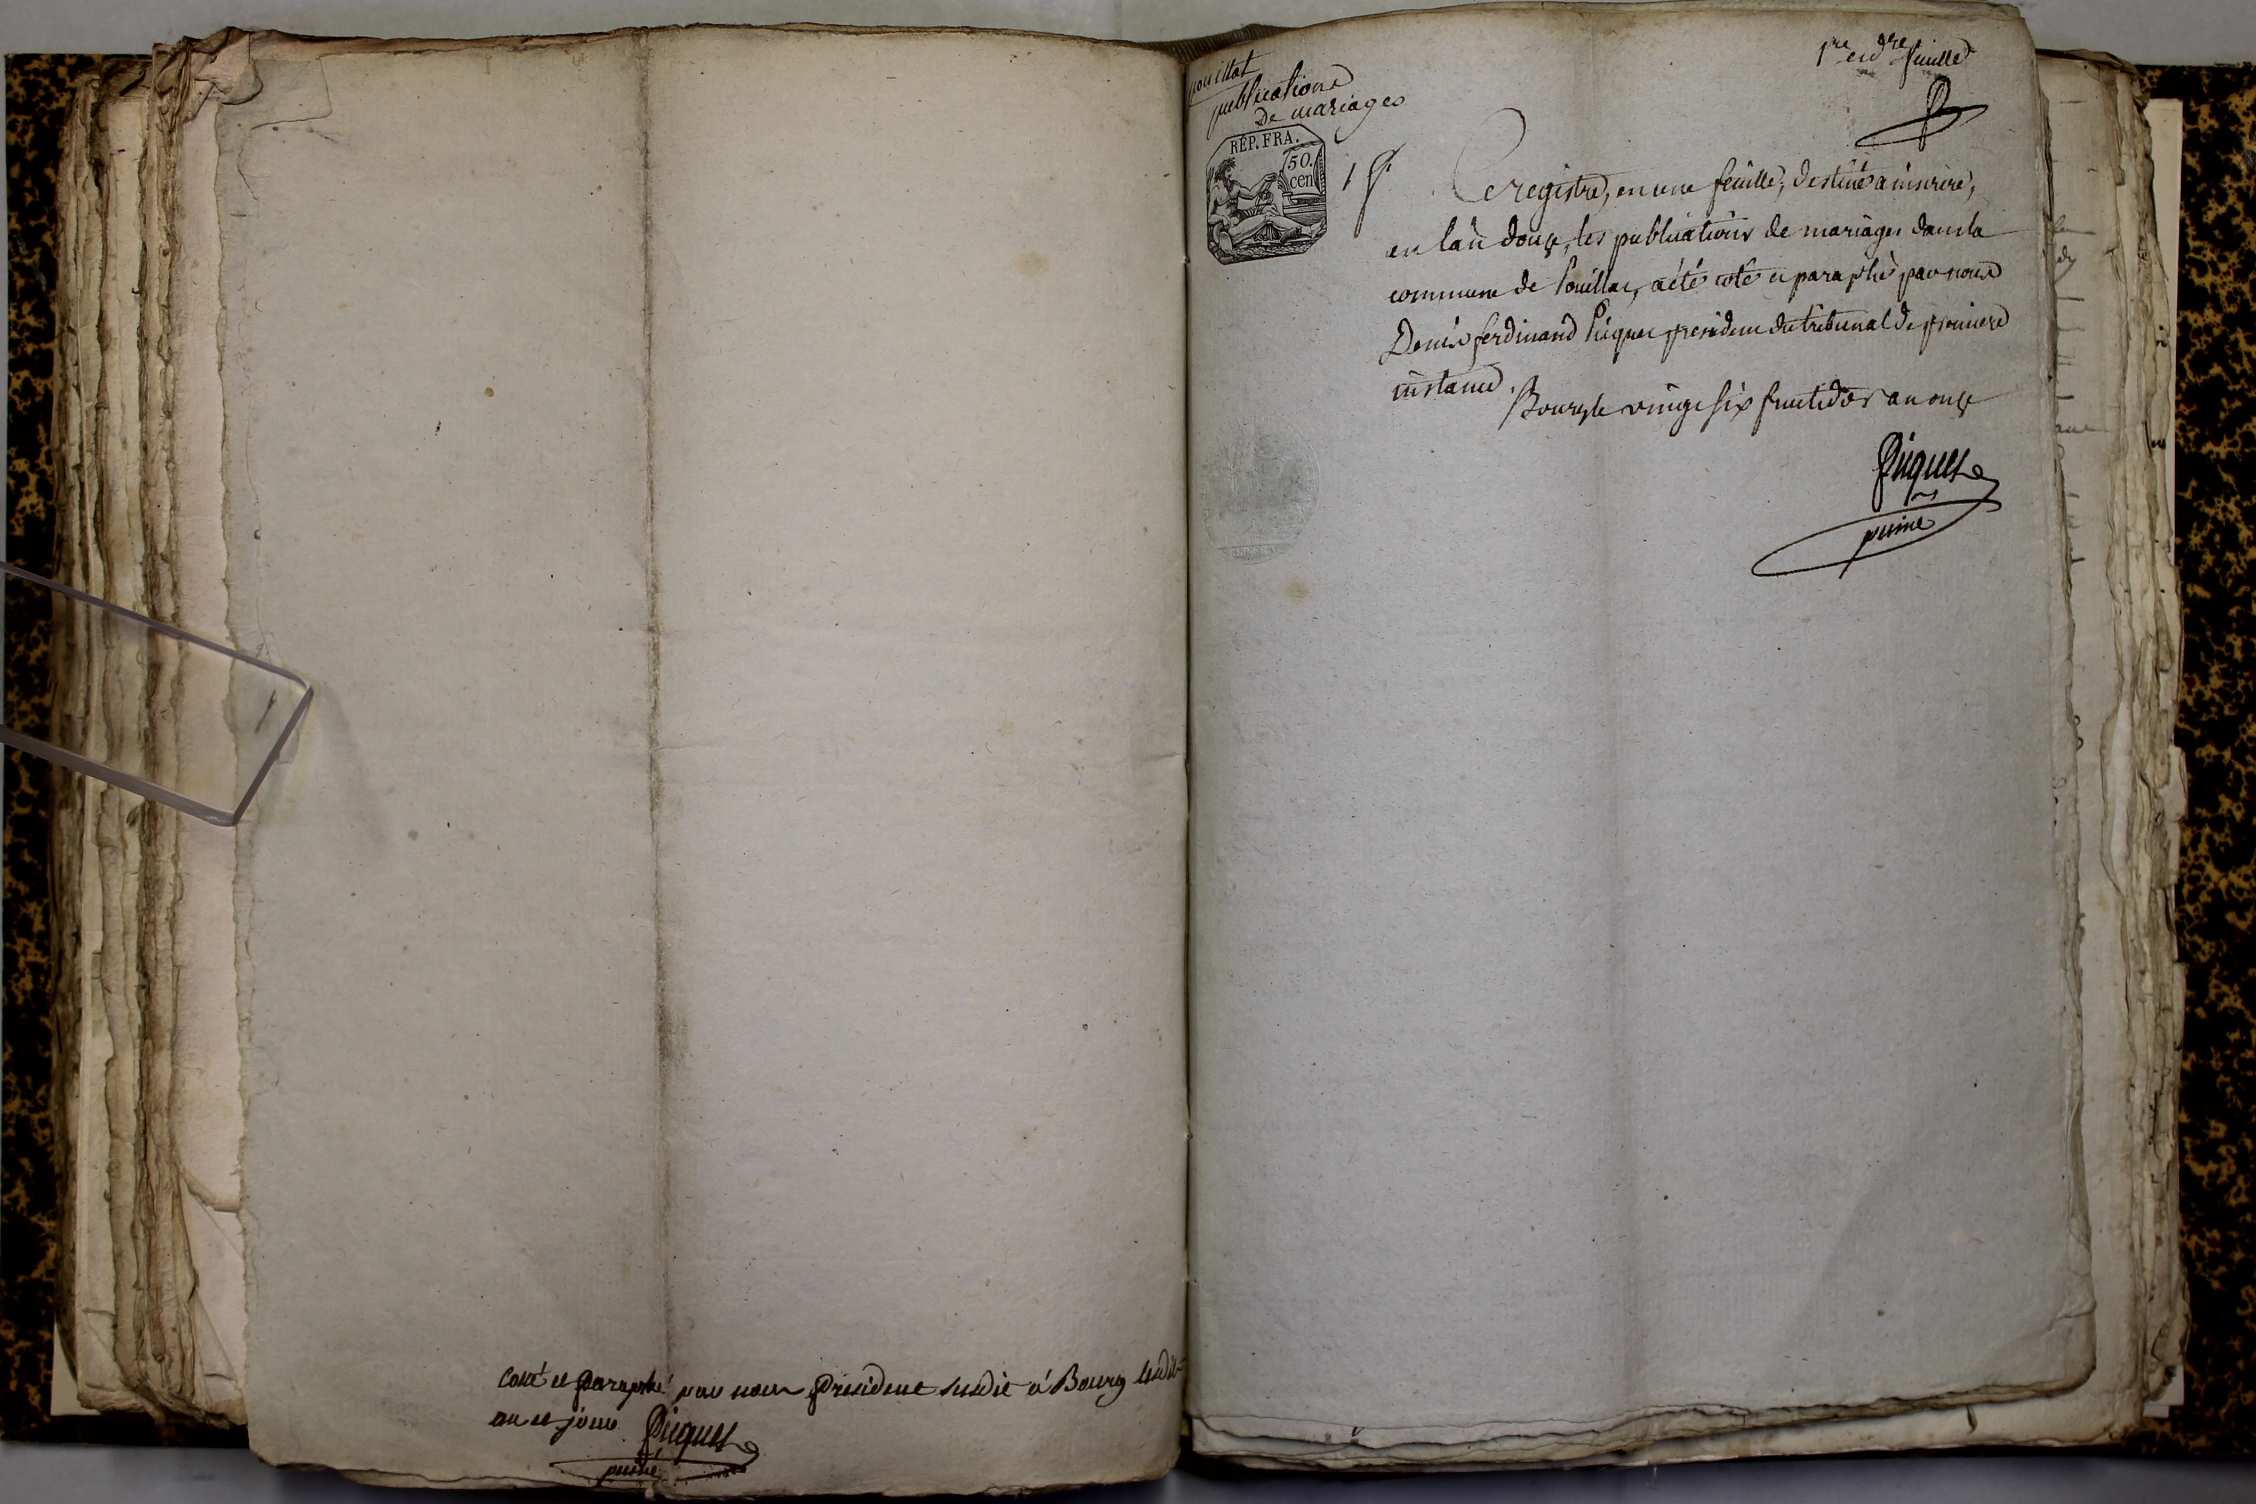 Cotté et paraphé par nous président susdit à Bourg lesdits
an et jour. Picquet
puiné
pouillat
publications
de mariages
1re et dre feuille
RÉP. FRA.
50.
cen
Ce registre, en une feuille, destiné a inscrire,
en l'an douze, les publications de mariages dans la
commune de Pouillat, a été coté et paraphé par nous
Denis ferdinand Picquet président du tribunal de premiere
instance.
Bourg le vingt six fructidor an onze
Picquet
puine